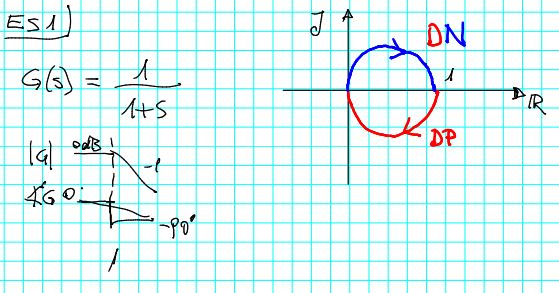 ES1)
G(s) = 1
1+s
|G| 0dB -1
∡G 0° -90°
1
J DN
1 R
DP